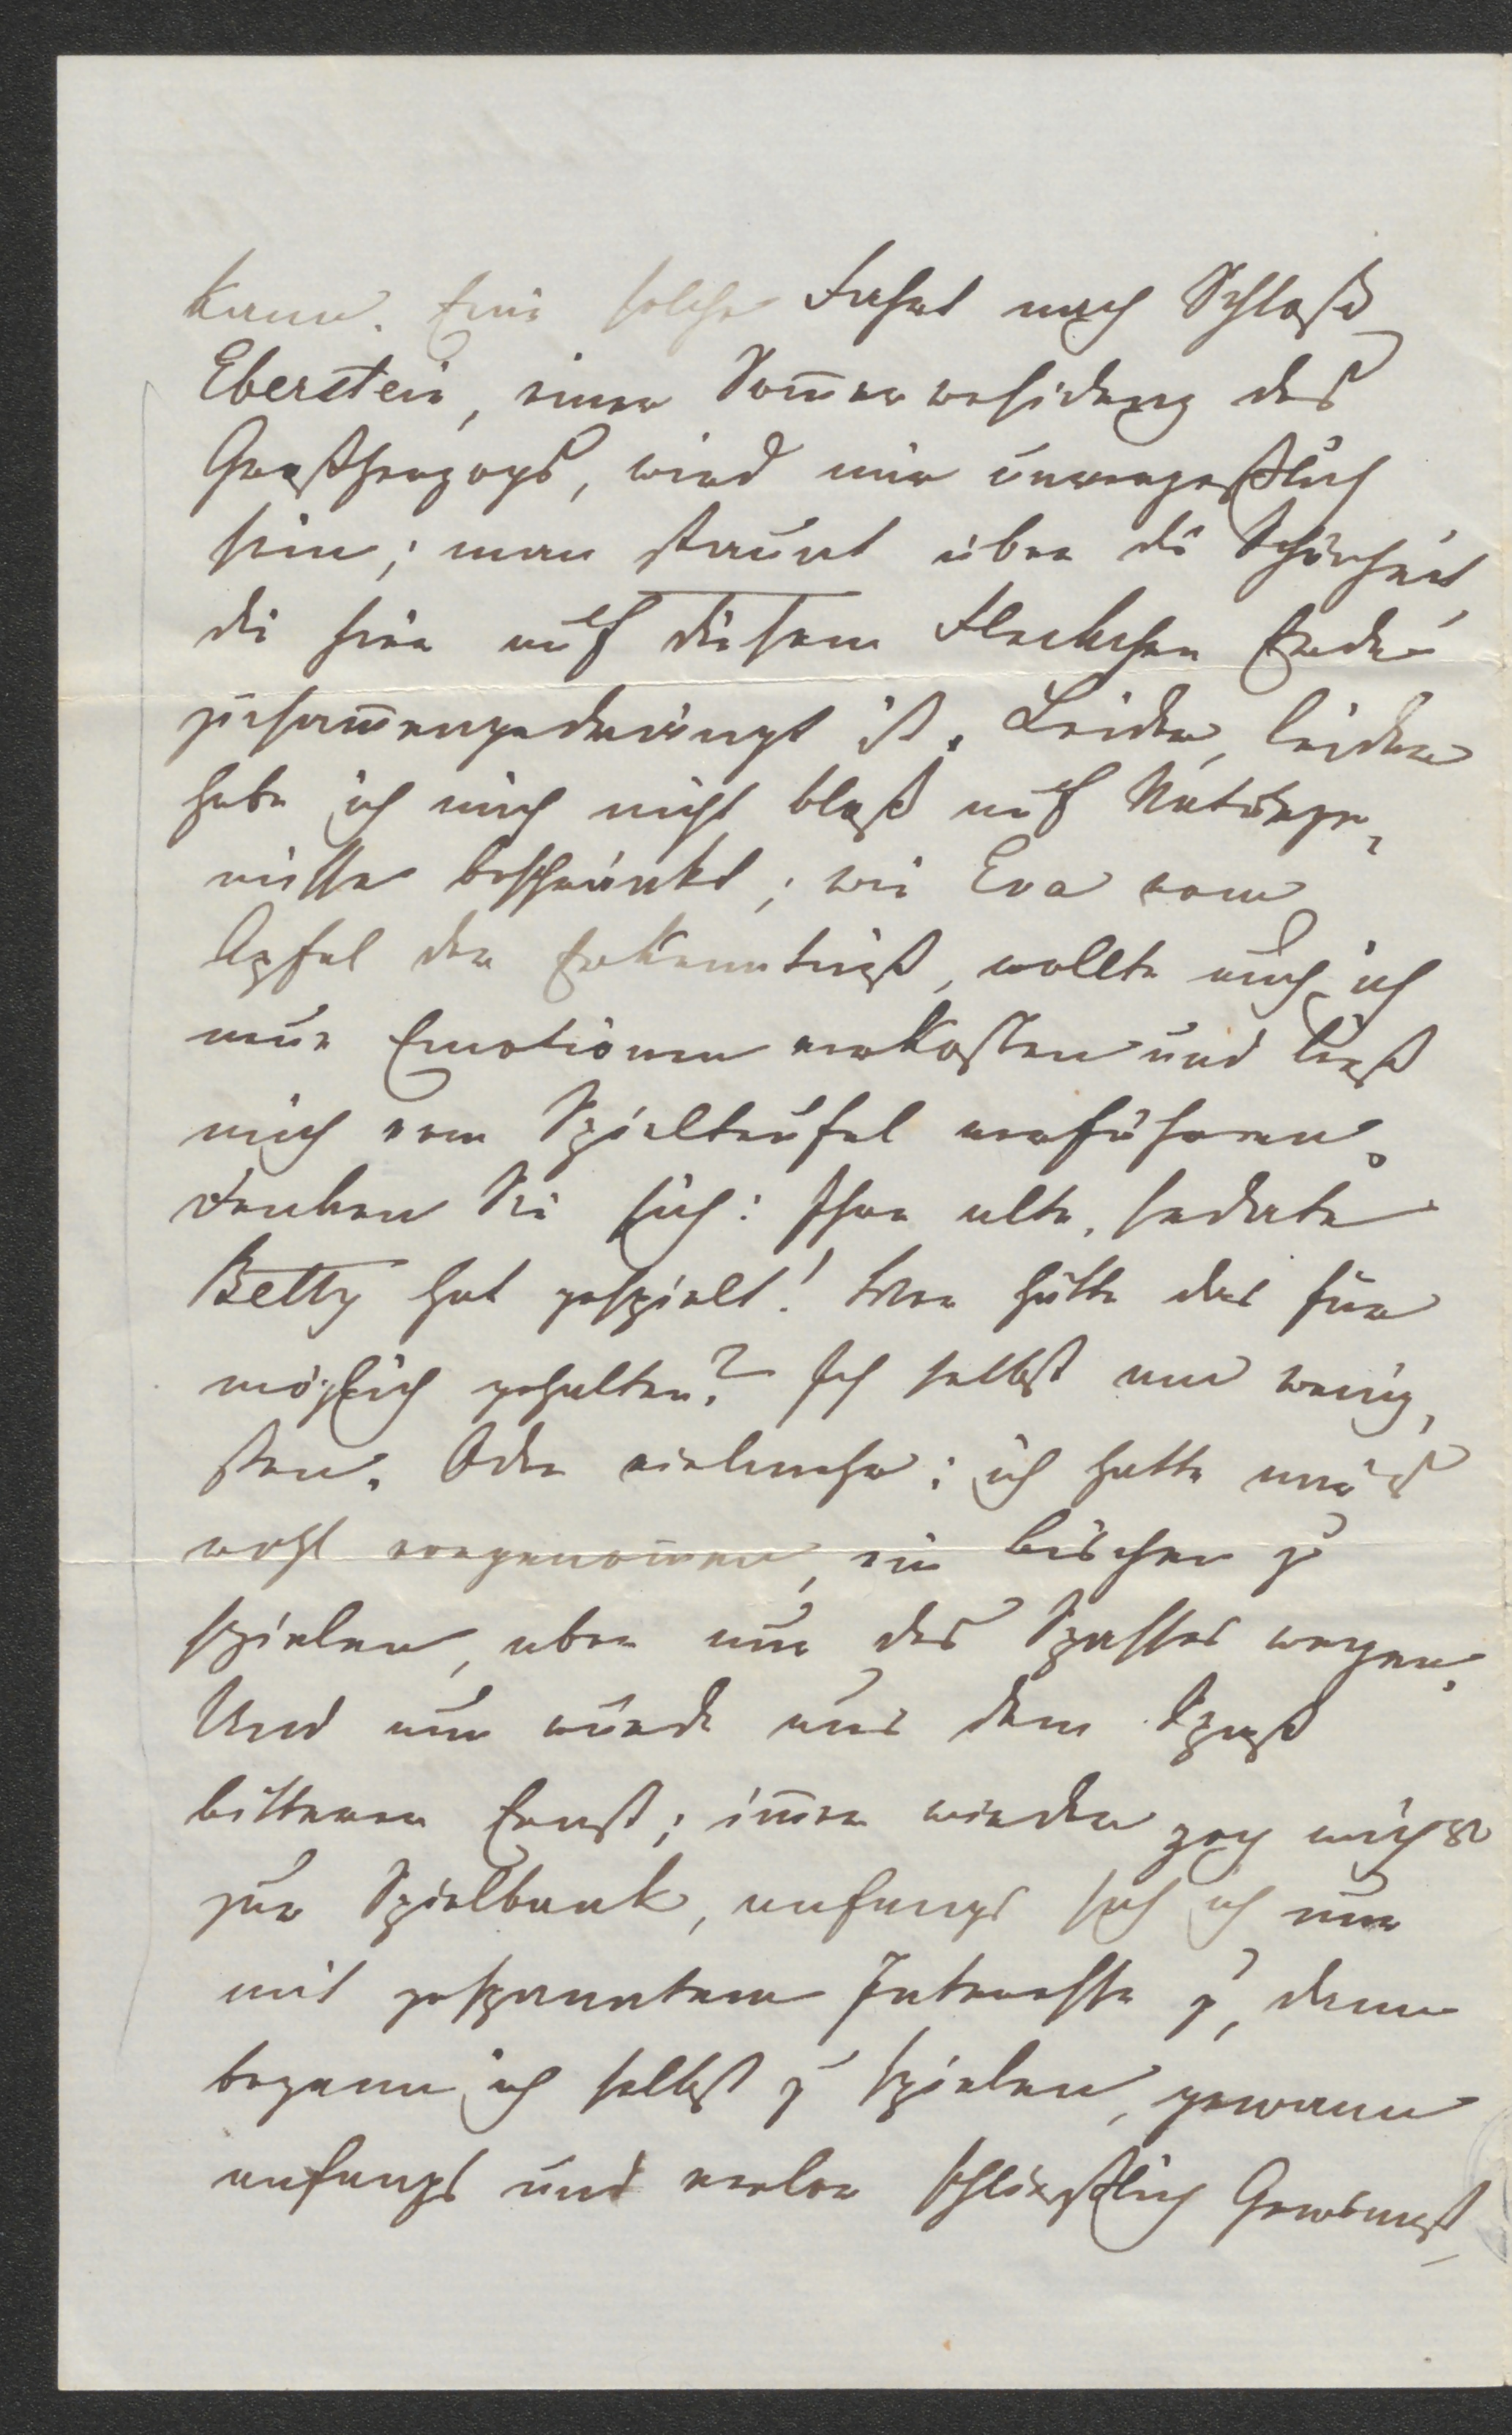 kann. Eine solche Fahrt nach Schloß
Eberstein, einer Som̅erresidenz des
Großherzogs, wird mir unvergeßlich
sein; man staunt über die Schönheit,
die hier auf diesem Fleckchen Erde
zusam̅engedrängt ist. Leider, leider
habe ich mich nicht bloß auf Naturge-
nüsse beschränkt; wie Eva vom
Apfel der Erkenntniß, wollte auch ich
neue Emotionen verkosten und ließ
mich vom Spielteufel verführen.
Denken Sie sich: Ihre alte, sedate
Betty hat gespielt! Wer hätte das für
möglich gehalten? Ich selbst am wenig-
sten. Oder vielmehr: ich hatte mir's
wohl vorgenom̅en, ein bischen zu
spielen, aber nur des Spasses wegen.
Und nun wurde aus dem Spaß
bitterer Ernst; im̅er wieder zog mich's
zur Spielbank, anfangs sah ich nur
mit gespanntem Interesse zu, dann
begann ich selbst zu spielen, gewann
anfangs und verlor schließlich Gewinnst